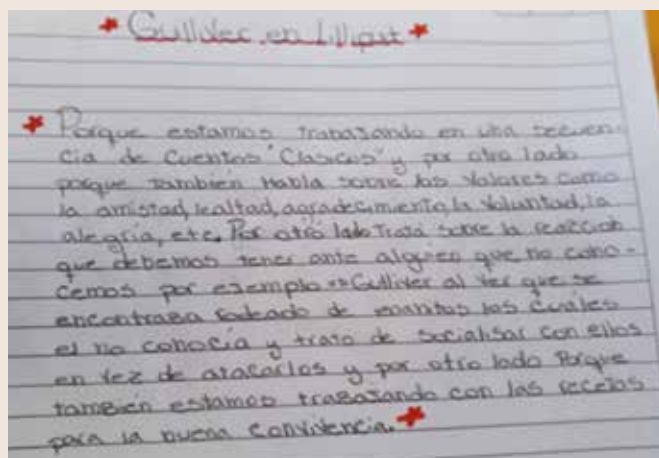 Gulliver en Lilliput
Porque estamos trabajando en una secuen-
cia de Cuentos "Clasicos" y por otro lado
porque también Habla sobre los Valores como
la amistad, lealtad, agradecimiento, la Voluntad, la
alegría, etc. Por otro lado Trata sobre la reacción
que debemos tener ante alguien que no cono-
cemos por ejemplo Gulliver al ver que se
encontraba rodeado de enanitos los cuales
el no conocía y trato de socialisar con ellos
en vez de atacarlos y por otro lado Porque
también estamos trabajando con las recetas
para la buena convivencia.